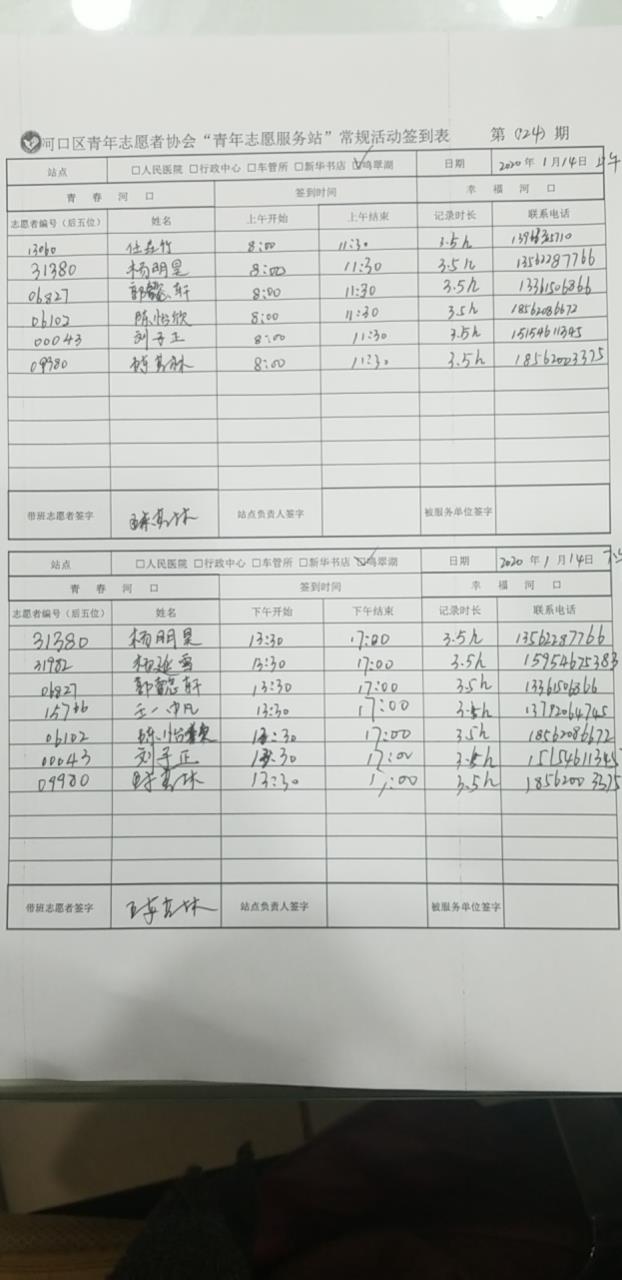 河口区青年志愿者协会“青年志愿服务站”常规活动签到表 第(124)期
站点 □人民医院 □行政中心 □车管所 □新华书店 ☑鸣翠湖 日期 2020年1月14日 上午
青春河口 签到时间 幸福河口
志愿者编号(后五位) 姓名 上午开始 上午结束 记录时长 联系电话
13060 8:00 11:30 3.5h
31380 杨明昊 8:00 11:30 3.5h 13562287766
06827 郭懿轩 8:00 11:30 3.5h 13361506866
06102 陈怡欣 8:00 11:30 3.5h 18562086672
00043 刘子正 8:00 11:30 3.5h 15154611345
8:00 11:30 3.5h 18562003375
带班志愿者签字 站点负责人签字 被服务单位签字
站点 □人民医院 □行政中心 □车管所 □新华书店 ☑鸣翠湖 日期 2020年1月14日 下午
青春河口 签到时间 幸福河口
志愿者编号(后五位) 姓名 下午开始 下午结束 记录时长 联系电话
31380 杨明昊 13:30 17:00 3.5h 13562287766
31982 13:30 17:00 3.5h 15954675383
06827 郭懿轩 13:30 17:00 3.5h 13361506866
15766 王一凡 13:30 17:00 3.5h 13792064745
06102 13:30 17:00 3.5h 18562086672
00043 刘子正 13:30 17:00 3.5h 15154611345
09980 13:30 17:00 3.5h 18562003375
带班志愿者签字 站点负责人签字 被服务单位签字